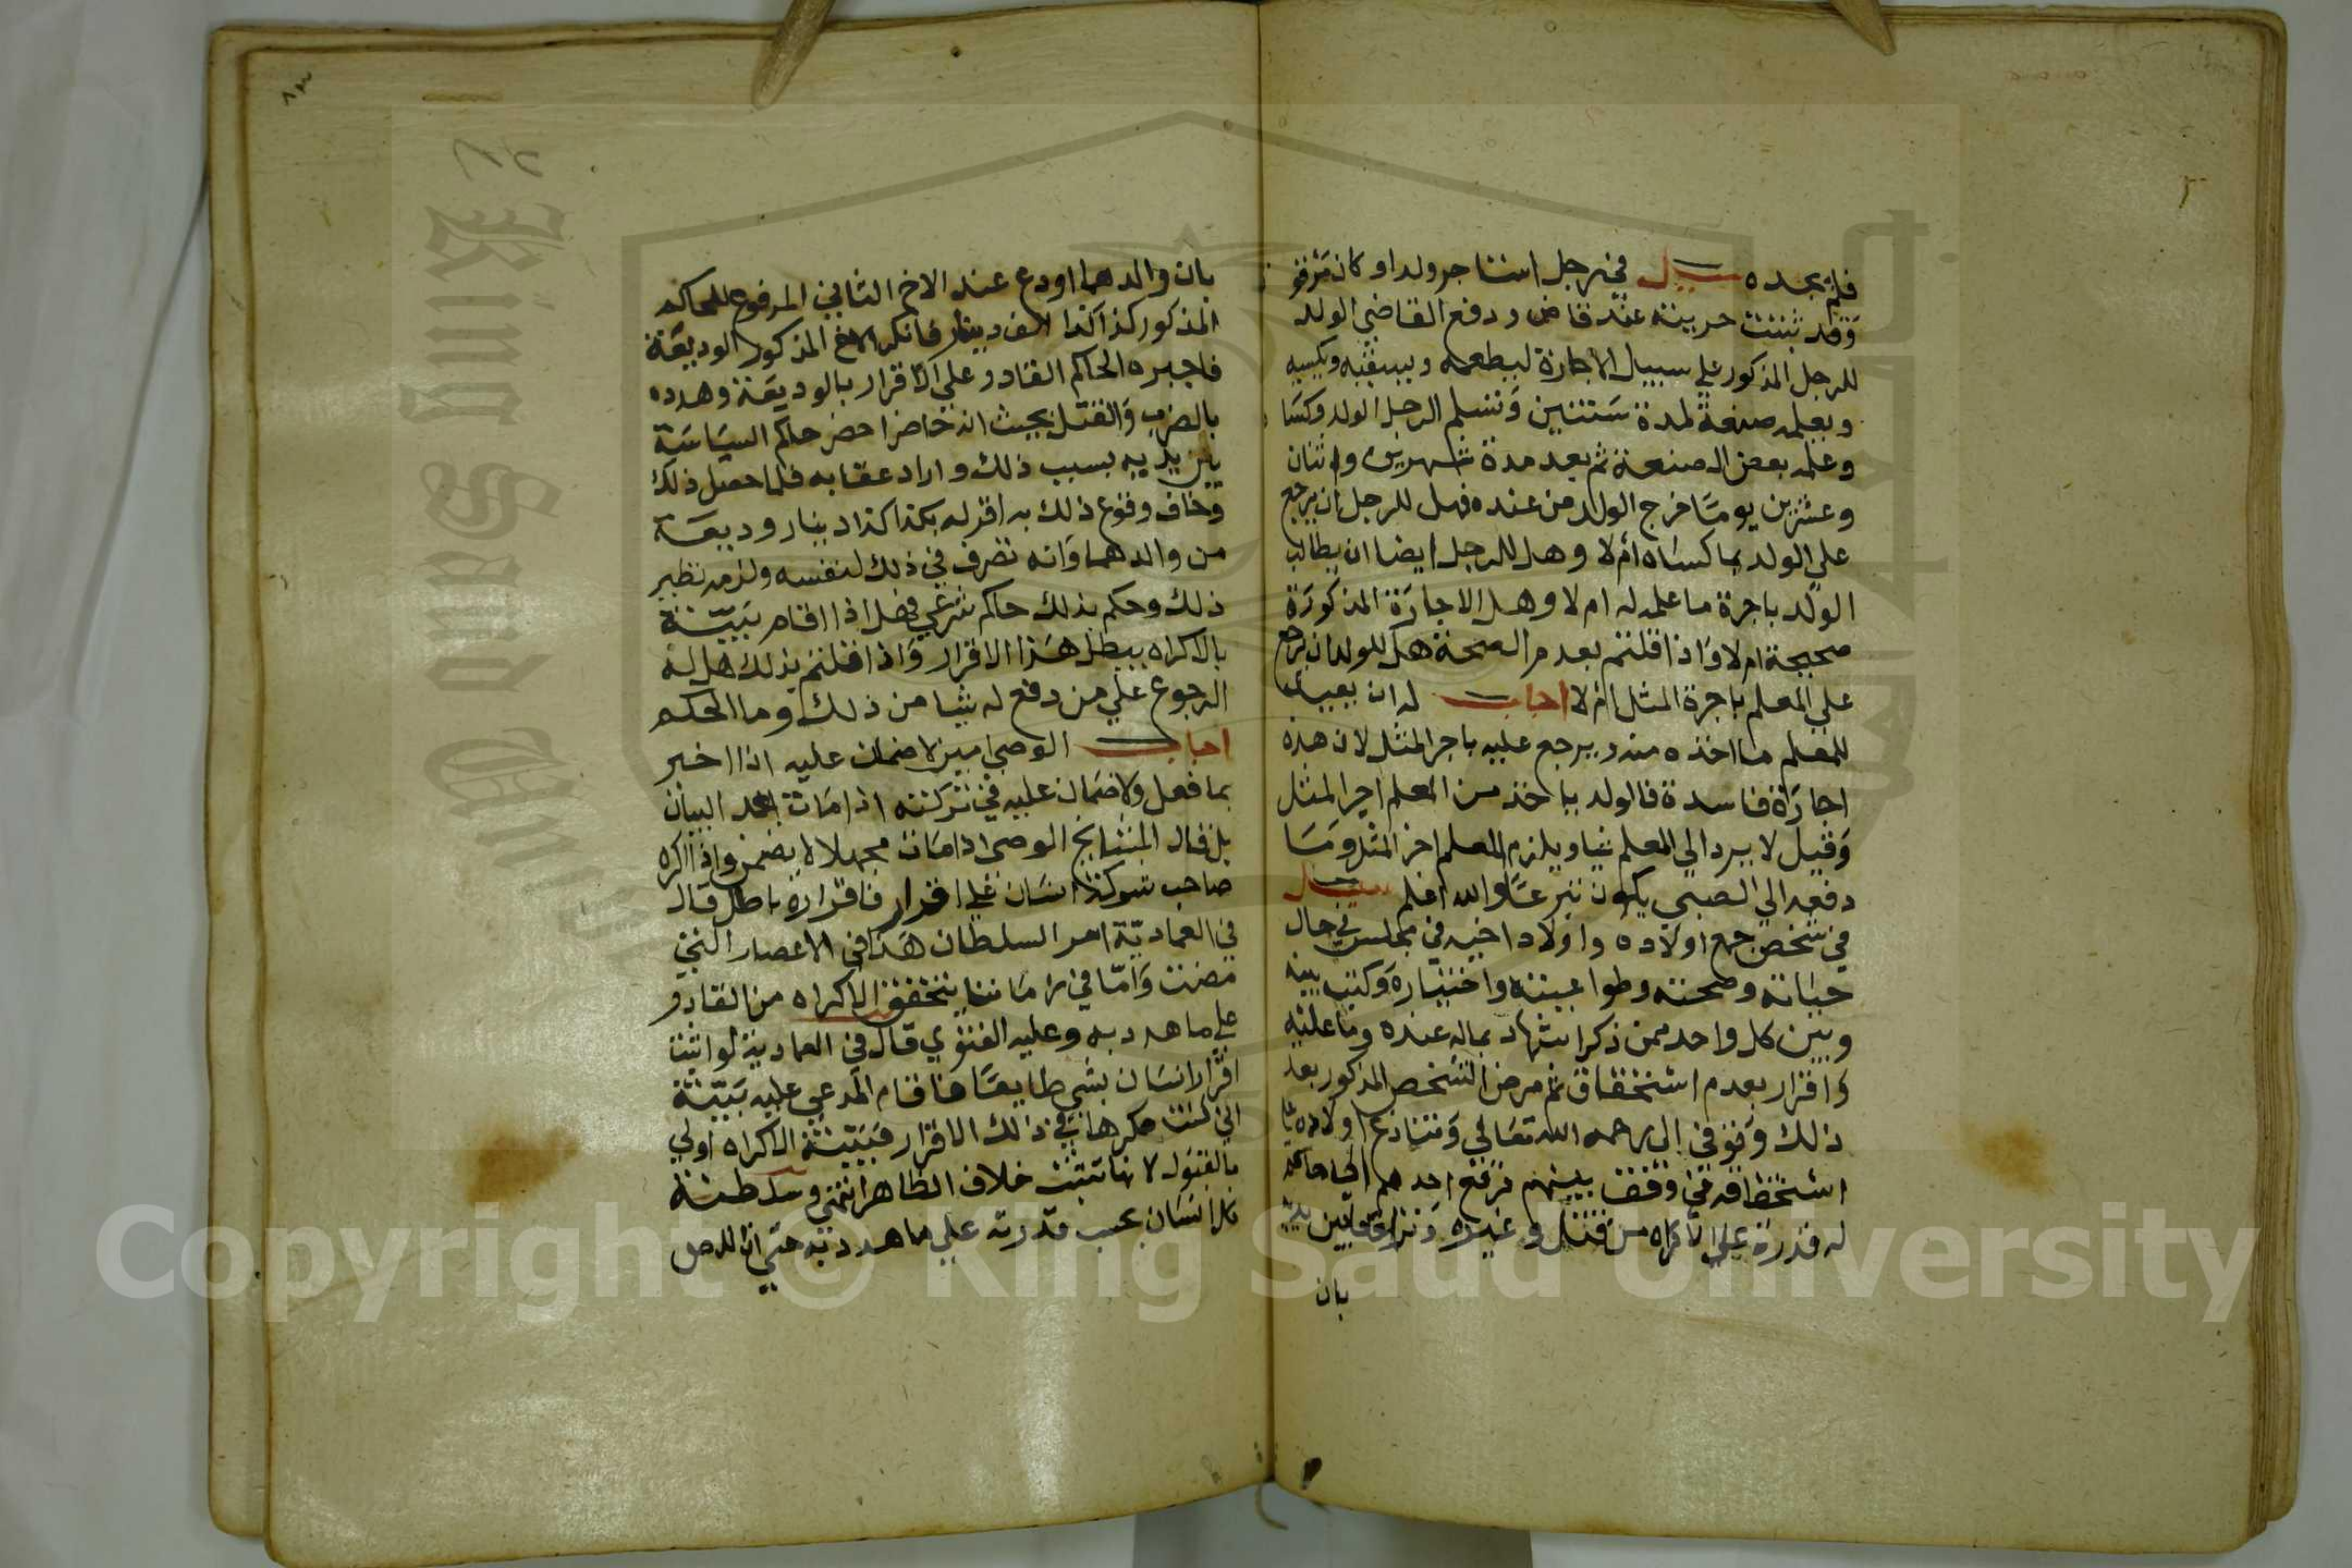 فلم يجده سئل في رجل استاجر ولدا وكان مترفق
وقد ثبتت حريته عند قاض ودفع القاضي الولد
للرجل المذكور علي سبيل الاجارة ليطعمه ويسقيه ويكسيه
ويعلمه صنعة لمدة سنتين وتسلم الرجل الولد وكسا
وعلمه بعض الصنعة ثم بعد مدة شهرين واثنان
وعشرين يوما خرج الولد من عنده فهل للرجل ان يرجع
علي الولد بما كساه أم لا وهل للرجل ايضا ان يطالب
الولد باجرة ما علمه له ام لا وهل الاجارة المذكورة
صحيحة ام لا واذا قلتم بعدم الصحة هل للولد ان يرجع
علي المعلم باجرة المثل أم لا اجاب له ان يعيب
للمعلم ما اخذه منه ويرجع عليه باجر المثل لان هذه
اجارة فاسدة فالولد ياخذ من المعلم اجر المثل
وقيل لا يرد الي المعلم شيا ويلزم المعلم اجر المثل وما
دفعه الي الصبي يكون تبرعا والله اعلم سئل
في شخص جمع اولاده واولاد اخيه في مجلس في حال
حياته وصحته وطواعيته واختياره وكتب بينه
وبين كل واحد ممن ذكر اشهاد بماله عنده وما عليه
واقرار بعدم استحقاق ثم مرض الشخص المذكور بعد
ذلك وتوفي الي رحمه الله تعالي وتنازع اولاده
بينهم فرفع احدهم الي حاكم
له قدرة علي الاكراه من قتل وغيره
بان
بان والدهما اودع عند الاخ الثاني المرفوع للحاكم
المذكور كذا كذا الف دينار فانكر الاخ المذكور الوديعة
فاجبره الحاكم القادر علي الاقرار بالوديعة وهدده
بالضرب والقتل بحيث انه حاضرا حضر حاكم السياسة
بين يديه بسبب ذلك واراد عقابه فلما حصل ذلك
وخاف وقوع ذلك به اقر له بكذا كذا دينار وديعة
من والدهما وانه تصرف في ذلك لنفسه ولزمه نظير
ذلك وحكم بذلك حاكم شرعي فهل اذا اقام بينة
بالاكراه يبطل هذا الاقرار واذا قلتم بذلك هل له
الرجوع علي من دفع له شيا من ذلك وما الحكم
اجاب الوصي امين لا ضمان عليه اذا اخبر
بما فعل ولا ضمان عليه في تركته اذا مات بعد البيان
بل قال المشايخ الوصي اذا مات مجهلا لا يضمن واذا اكره
صاحب شوكة انسان علي اقرار فاقراره باطل قال
في العمادية امر السلطان هذا في الاعصار التي
مضت واما في زماننا يتحقق الاكراه من القادر
علي ما هدد به وعليه الفتوي قال في العمادية لو اثبت
اقرار انسان بشي طايعا فاقام المدعي عليه بينة
اني كنت مكرها في ذلك الاقرار فبينة الاكراه اولي
بالقبول لانها تثبت خلاف الظاهر انتهي وسلطنة
كل انسان بحسب قدرته علي ما هدد به حتي ان اللص